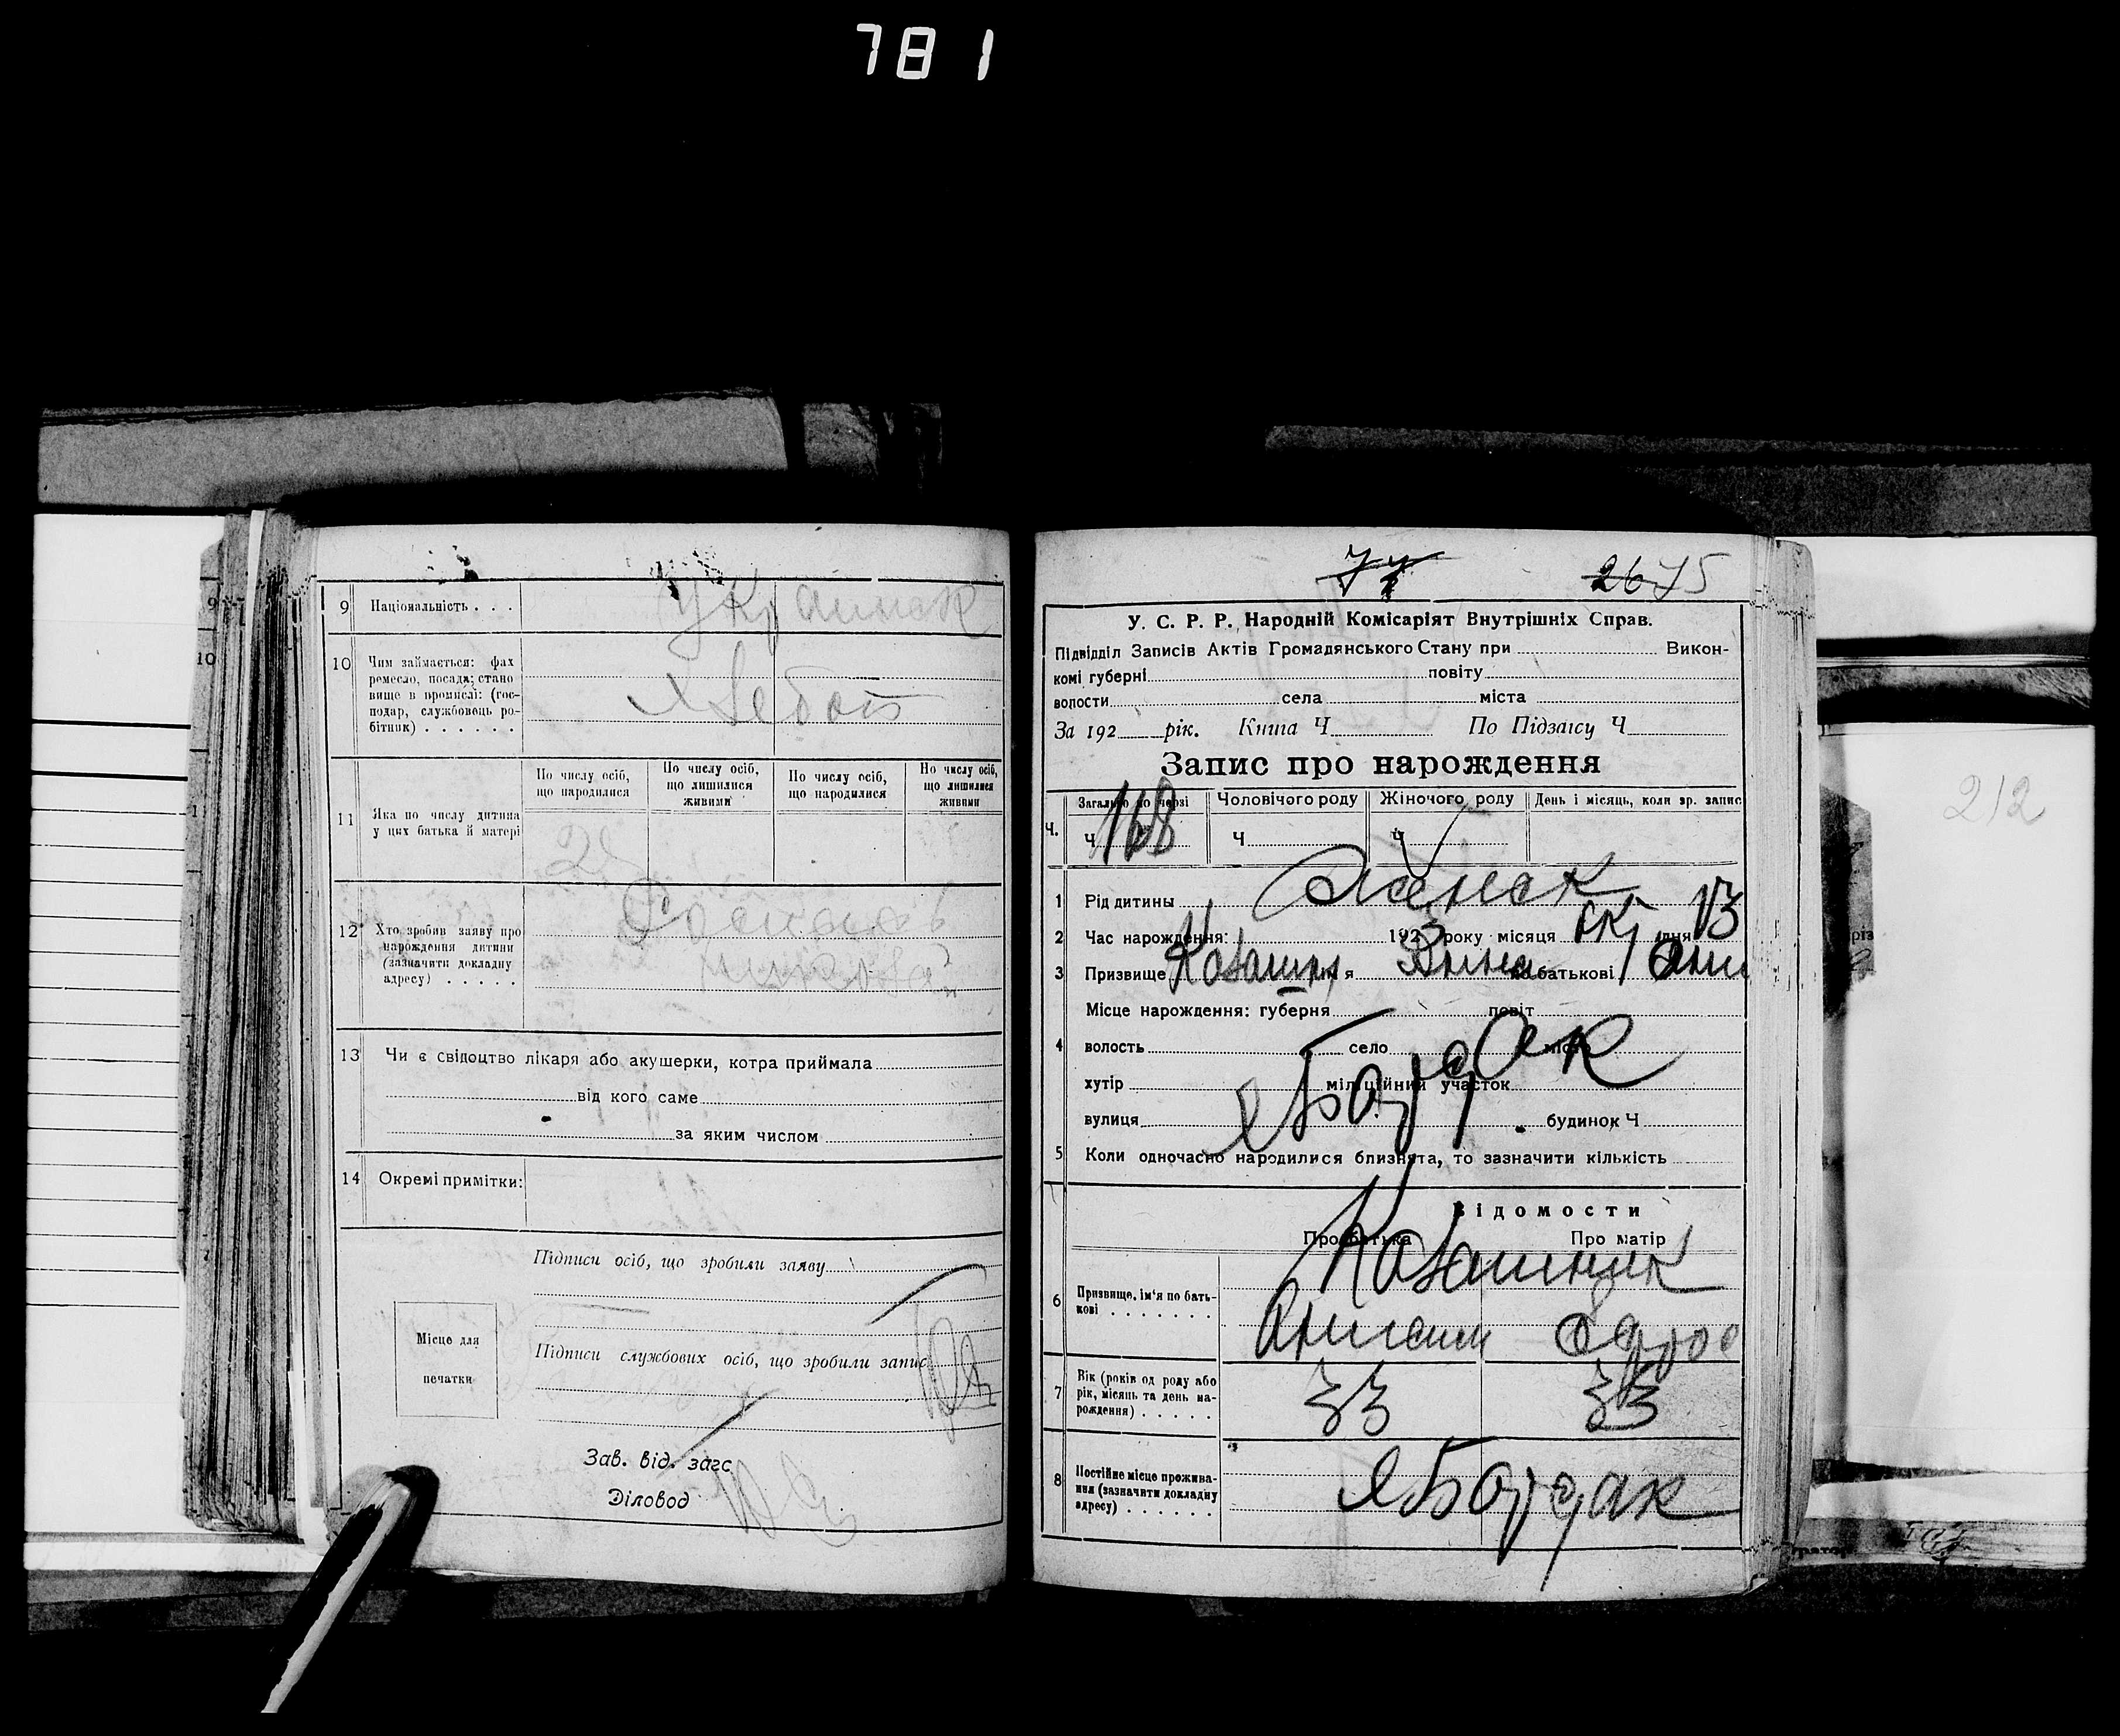 781
9 Національність . . .
Украинск
10 Чим займається: фах
ремесло, посада; стано
вище в промислі: (гос-
подар, службовець ро-
бітник) . . . . . .
хлебоп
11 Яка по числу дитина
у цих батька й матері
По числу осіб,
що народилися
По числу осіб,
що лишилися
живими
По числу осіб,
що народилися
По числу осіб,
що лишилися
живими
12 Хто зробив заяву про
народження дитини
(зазначити докладну
адресу) . . . . .
13 Чи є свідоцтво лікаря або акушерки, котра приймала
від кого саме
за яким числом
14 Окремі примітки:
Підписи осіб, що зробили заяву
Місце для
печатки
Підписи службових осіб, що зробили запис
Зав. від. загс
Діловод
77 26 75
У. С. Р. Р. Народній Комісаріят Внутрішніх Справ.
Підвідділ Записів Актів Громадянського Стану при Викон-
комі губерні повіту
волости села міста
За 192 рік. Книга Ч По Підзагсу Ч
Запис про нарождення
Ч. Загально по черзі Чоловічого роду Жіночого роду День і місяць, коли зр. запис
Ч 168 Ч Ч
1 Рід дитини Женск
2 Час нарождення: 1923 року місяця окт дня 13
3 Призвище імя по батькові
Місце нарождення: губерня повіт
4 волость село місто
хутір міліційний участок
вулиця будинок Ч
5 Коли одночасно народилися близнята, то зазначити кількість
Відомости
Про батька Про матір
6 Призвище, ім'я по бать-
кові . . . . . . .
Анисим
7 Вік (років од роду або
рік, місяць та день на-
рождення) . . . . .
33 33
8 Постійне місце прожива-
ння (зазначити докладну
адресу) . . . . . .
212